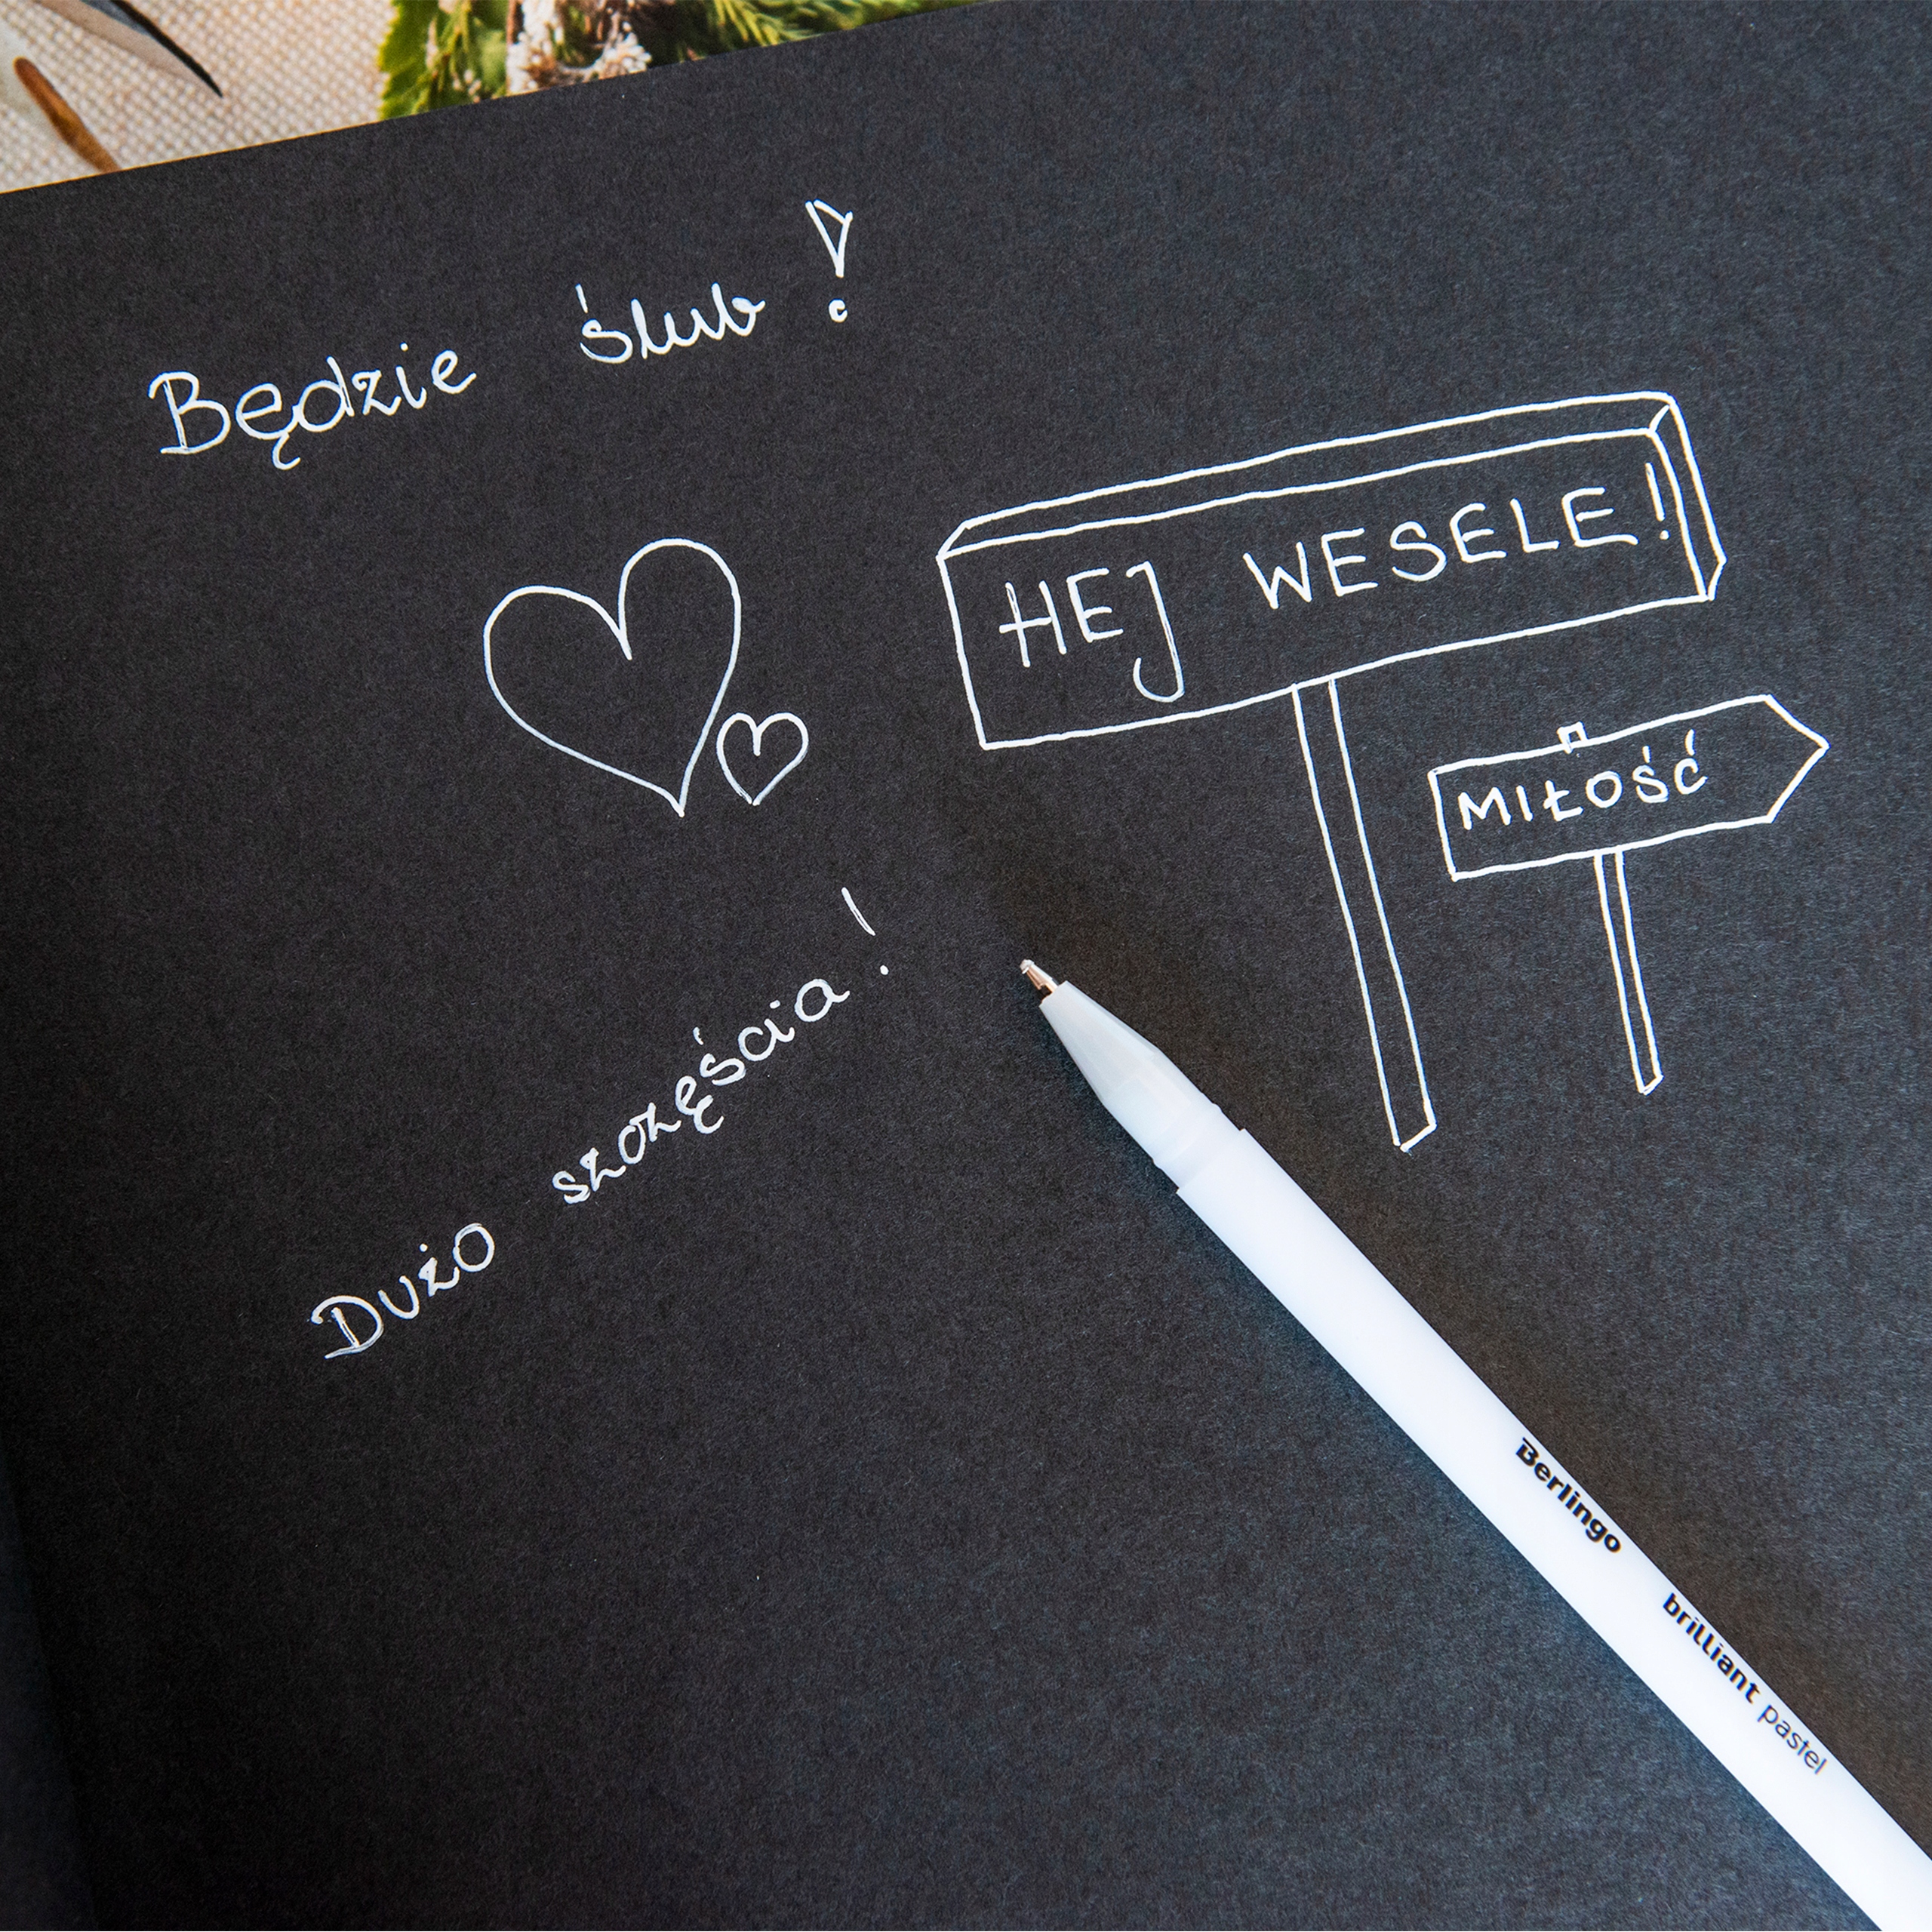 Będzie ślub!
HEJ WESELE!
MIŁOŚĆ
Dużo szczęścia!
Berlingo brilliant pastel